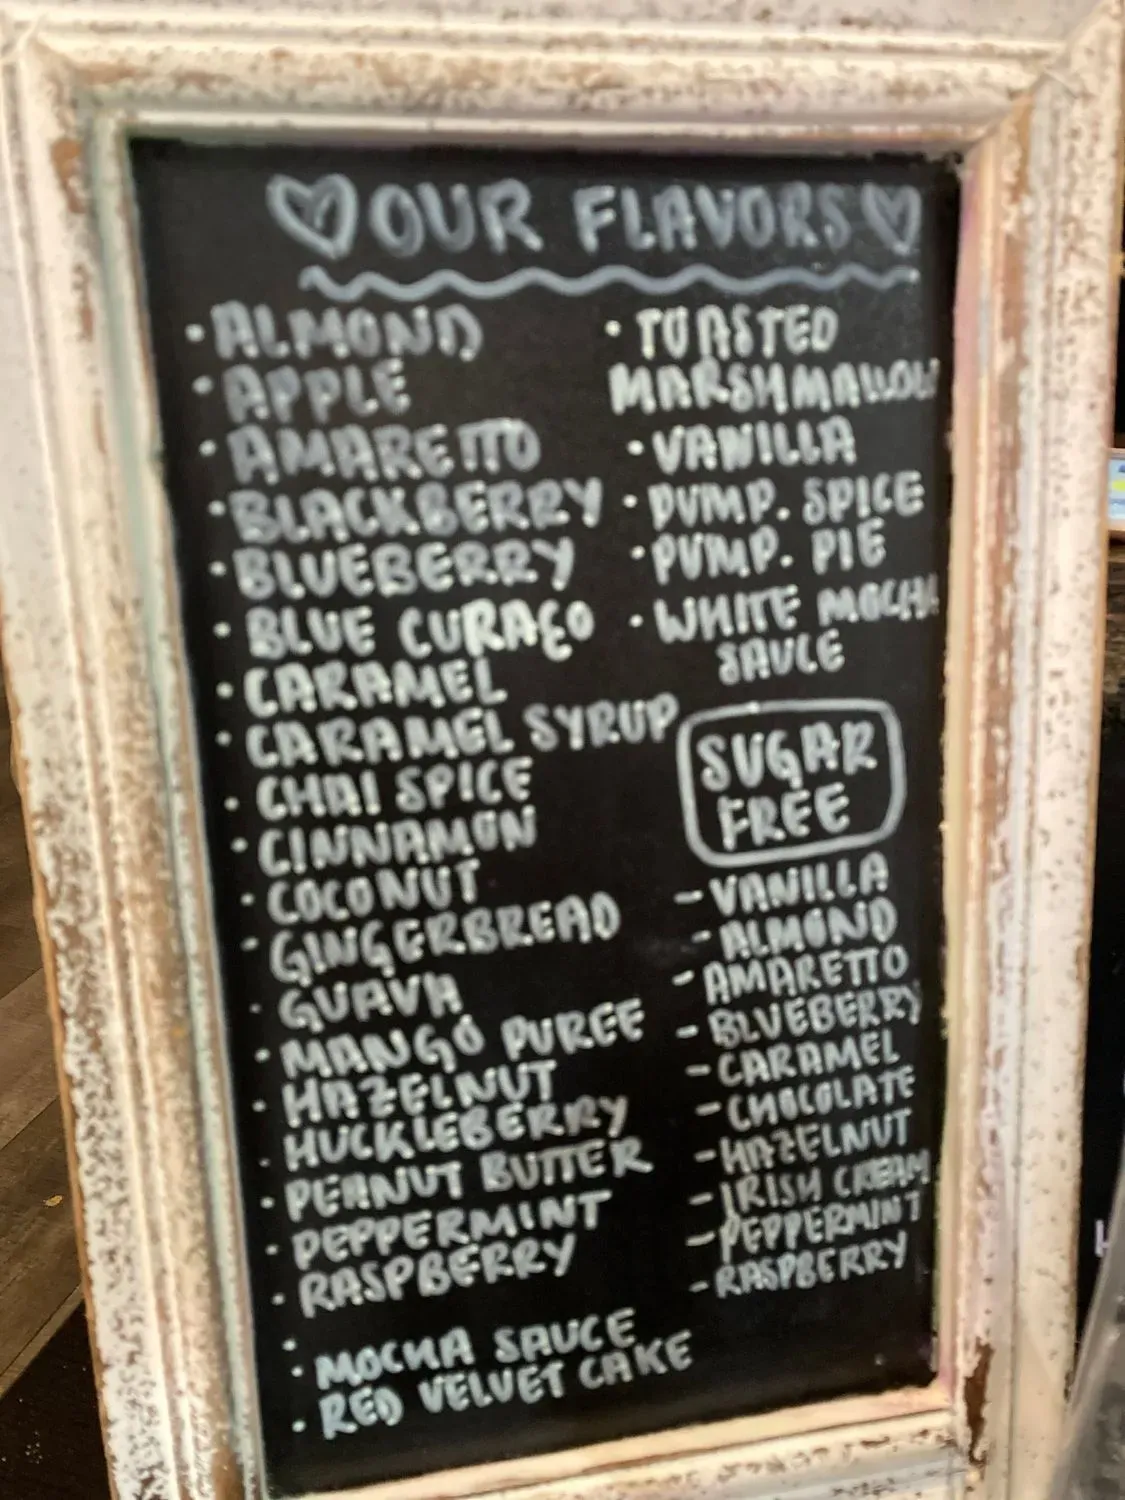 ♡ OUR FLAVORS ♡
• ALMOND
• APPLE
• AMARETTO
• BLACKBERRY
• BLUEBERRY
• BLUE CURAÇO
• CARAMEL
• CARAMEL SYRUP
• CHAI SPICE
• CINNAMON
• COCONUT
• GINGERBREAD
• GUAVA
• MANGO PUREE
• HAZELNUT
• HUCKLEBERRY
• PEANUT BUTTER
• PEPPERMINT
• RASPBERRY
• MOCHA SAUCE
• RED VELVET CAKE
• TOASTED
MARSHMALLOW
• VANILLA
• PUMP. SPICE
• PUMP. PIE
• WHITE MOCHA
SAUCE
SUGAR
FREE
- VANILLA
- ALMOND
- AMARETTO
- BLUEBERRY
- CARAMEL
- CHOCOLATE
- HAZELNUT
- IRISH CREAM
- PEPPERMINT
- RASPBERRY